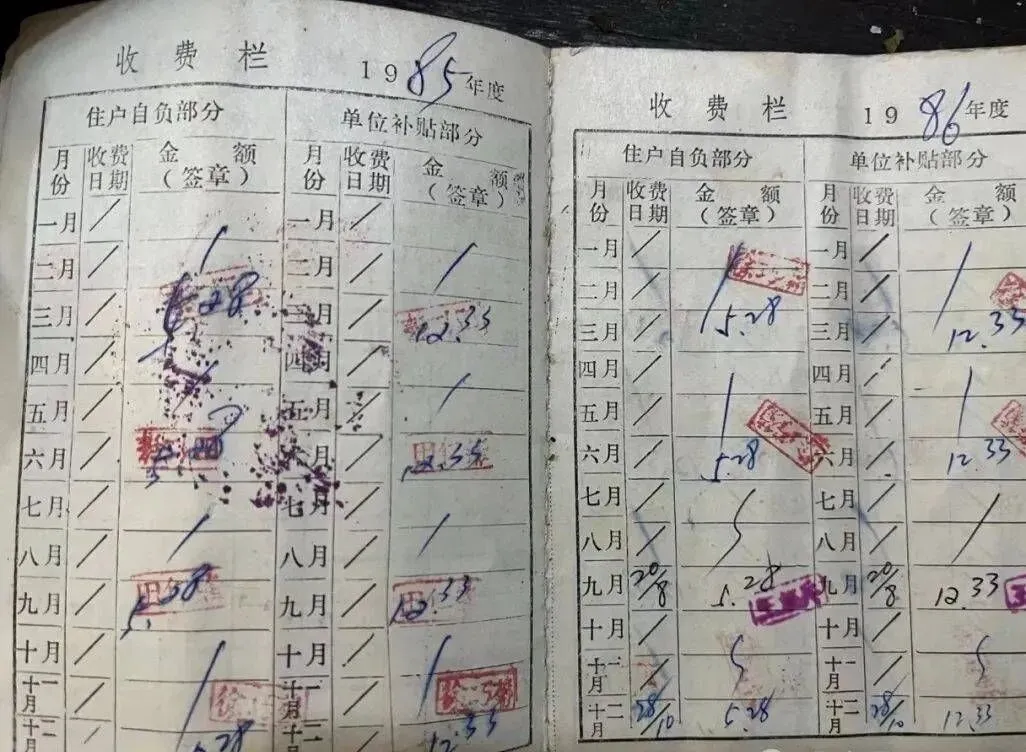 收费栏 1985年度
住户自负部分 单位补贴部分
月份 收费日期 金额(签章) 月份 收费日期 金额(签章)
一月 / 一月 /
二月 / 二月 /
三月 / 5.28 三月 / 12.33
四月 / 四月 /
五月 / 五月 /
六月 / 5.28 六月 / 12.33
七月 / 七月 /
八月 / 八月 /
九月 / 5.28 九月 / 12.33
十月 / 十月 /
十一月 / 十一月 /
十二 / 5.28 十二 / 12.33
收费栏 1986年度
住户自负部分 单位补贴部分
月份 收费日期 金额(签章) 月份 收费日期 金额(签章)
一月 / 一月 /
二月 / 二月 /
三月 / 5.28 三月 / 12.33
四月 / 四月 /
五月 / 五月 /
六月 / 5.28 六月 / 12.33
七月 / 七月 /
八月 / 八月 /
九月 20/8 5.28 九月 20/8 12.33
十月 / 十月 /
十一月 / 十一月 /
十二月 28/10 5.28 十二月 28/10 12.33